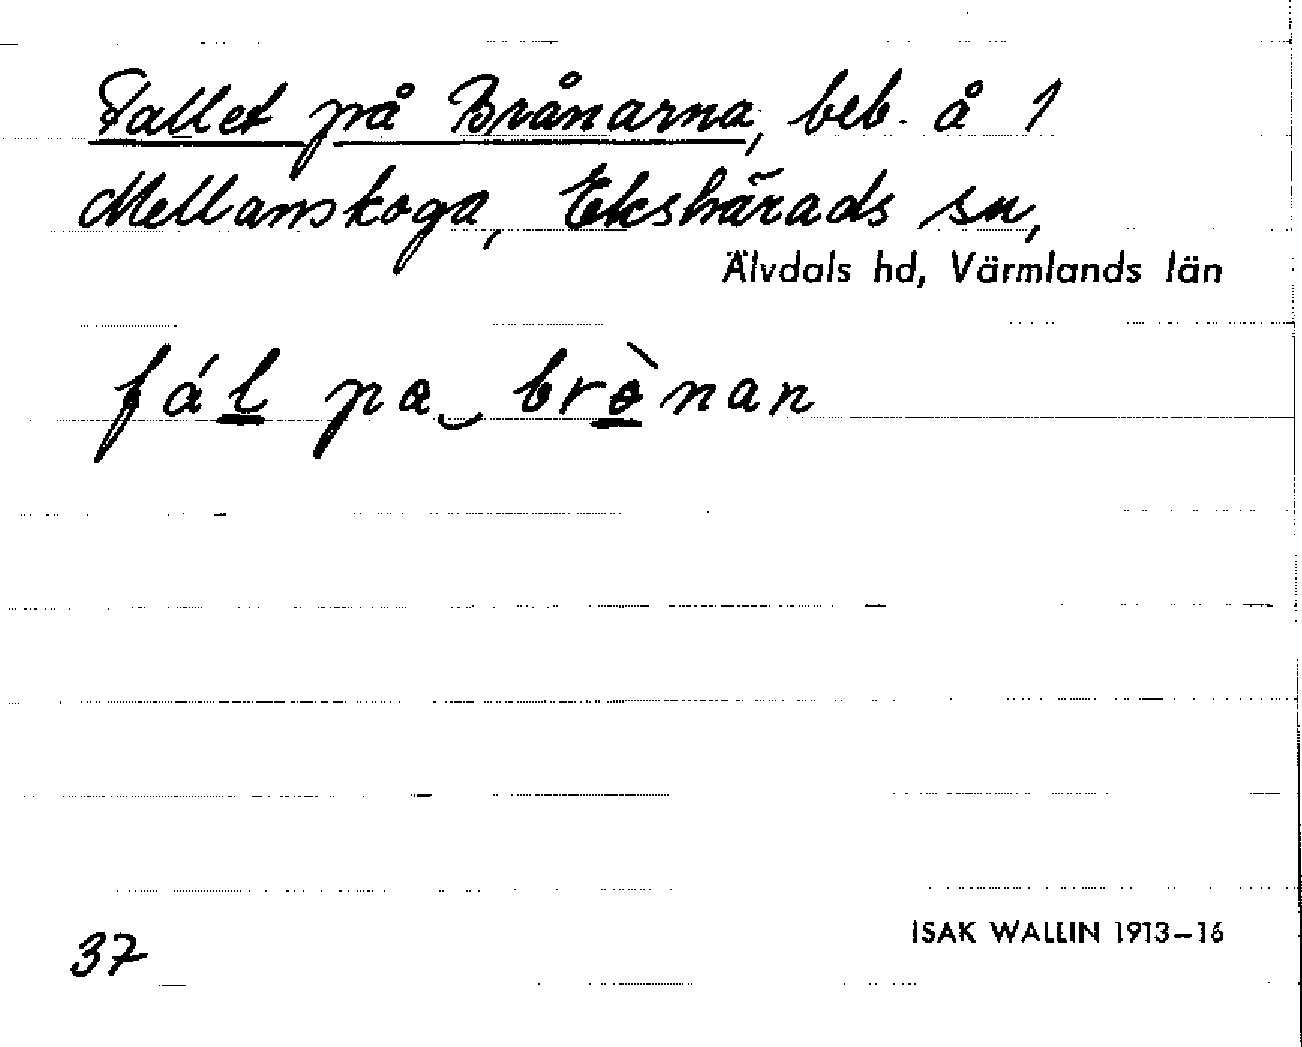 Fallet på Brånarna, beb. å 1
Mellanskoga, Ekshärads sn,
Älvdals hd, Värmlands län
fál pa brònan
37
ISAK WALLIN 1913–16